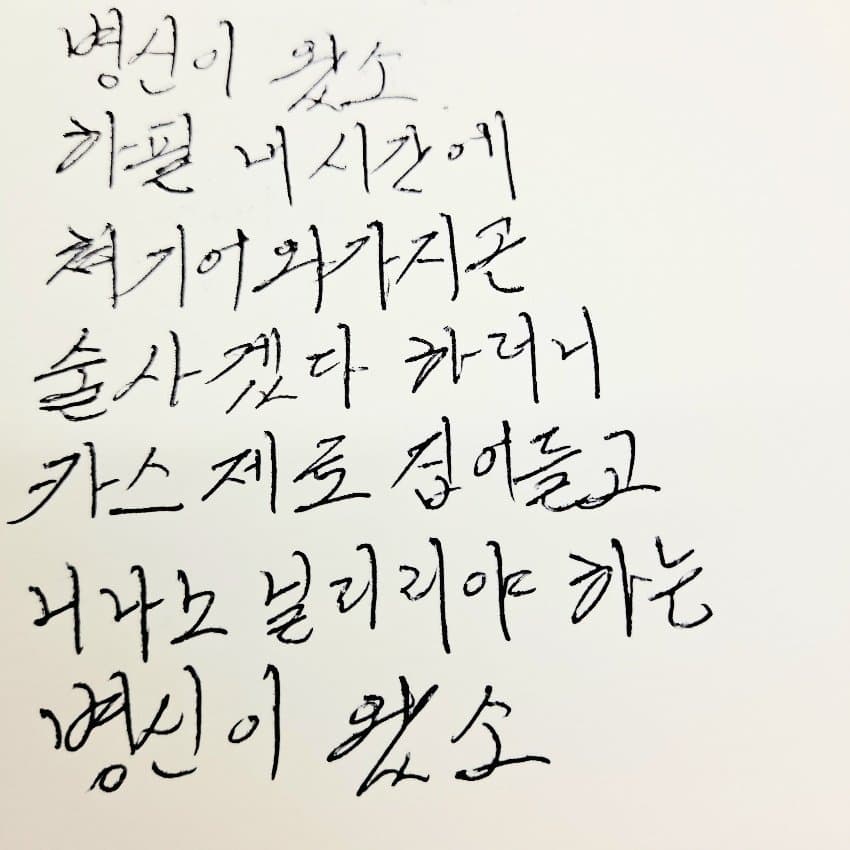 병신이 왔소
하필 내 시간에
쳐기어와가지곤
술사겠다 하더니
카스 제로 집어들고
니나노 닐리리야 하는
병신이 왔소